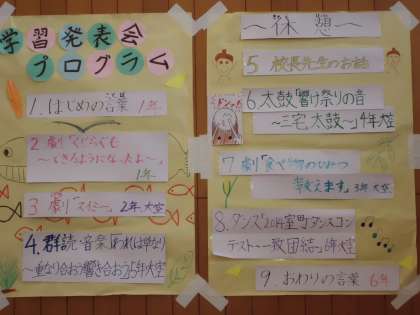 学習発表会
プログラム
1.はじめの言葉 1年
2.劇「くじらぐも
〜できるようになったよ〜」
1年
3.劇「スイミー」2年、大空
4.群読・音楽「われは草なり」
〜重なり合おう響き合おう〜5年大空
〜休憩〜
5 校長先生のお話
6.太鼓「響け祭りの音
〜三宅太鼓〜」4年大空
7 劇「食べ物のひみつ
教えます」3年大空
8.ダンス「2014室町ダンスコン
テスト〜一致団結〜」6年大空
9.おわりの言葉 6年